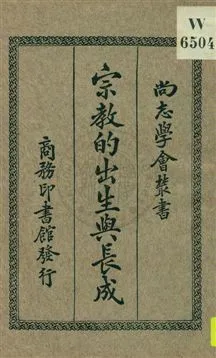 W
6504
尚志學會叢書
宗教的出生與長成
商務印書館發行